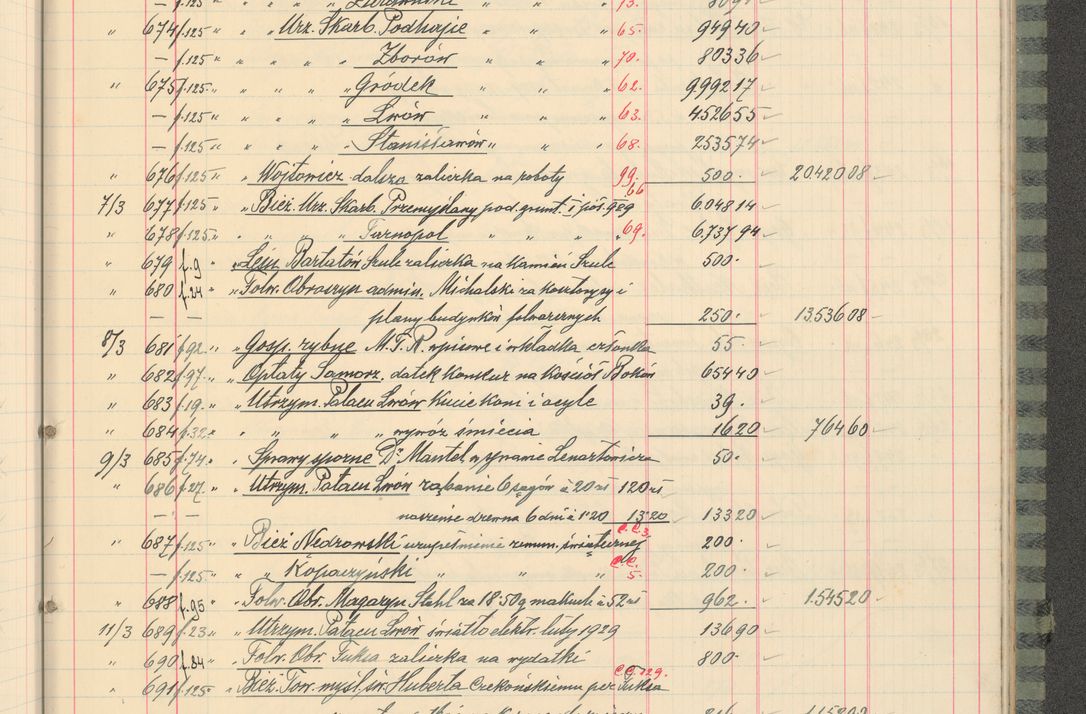 — f.125 " " " " " " 13.
" 674 f.125 " " Urz. Skarb. Podhajce " " 65. 949 40
— f.125 " " " " Zborów " " " 70. 803 36
" 675 f.125 " " " " Gródek " " " 62. 9.992 17
— f.125 " " " " Lwów " " 63. 4.526 55
— f.125 " " " " Stanisławów " " 68. 2535 74
" 676 f.125 " " Wojtowicz dalsza zaliczka na roboty 99. 500 . 20.420 08
7/3 677 f.125 " " Bież. Urz. Skarb. Przemyślany pod. grunt. i 929 66 6.048 14
" 678 f.125 " " " " Tarnopol " " " 69. 6.737 94
" 679 f.9 " Leśn. Bartatów Szulc zaliczka na kamień Szulc 500 .
" 680 f.24 " " Folw. Obroszyn admin. Michalski za kosztorysy i
— — plany budynków folwarcznych 250 . 13.536 08
8/3 681 f.92 " " Gosp. rybne M.T.R. wpisowe i wkładka członka 55 .
" 682 f.97 " " Opłaty Samorz. datek konkur na Kościół Boków 654 40
" 683 f.19 " " Utrzym. Pałacu Lwów kucie koni i ocyle 39 .
" 684 f.32 " " " " wywóz śmiecia 16 20 764 60
9/3 685 f.74 " " Sprawy sporne Dr Mantel w sprawie Lenartowicza 50 .
" 686 f.27 " " Utrzym. Pałacu Lwów rąbanie 6 sagów à 20 zł 120 zł
— — noszenie drzewa 6 dni à 2.20 13.20 133 20
" 687 f.125 " " Bież Nedrowski uzupełnienie remun. świątecznej C.C.3. 200 .
— f.125 " " " Kopaczyński " " " 5. 200 .
" 688 f.95 " Folw. Obr. Magazyn Stahl za 18.50 q makuch à 52 zł 962 . 1.545 20
11/3 689 f.23 " " Utrzym. Pałacu Lwów światło elektr. luty 1929 136 90
" 690 f.84 " Folw. Obr. Tuksa zaliczka na wydatki 800 .
" 691 f.125 " " Bież Tow. myśl. św. Huberta Czekońskiemu per Tuksa C.C. 129.